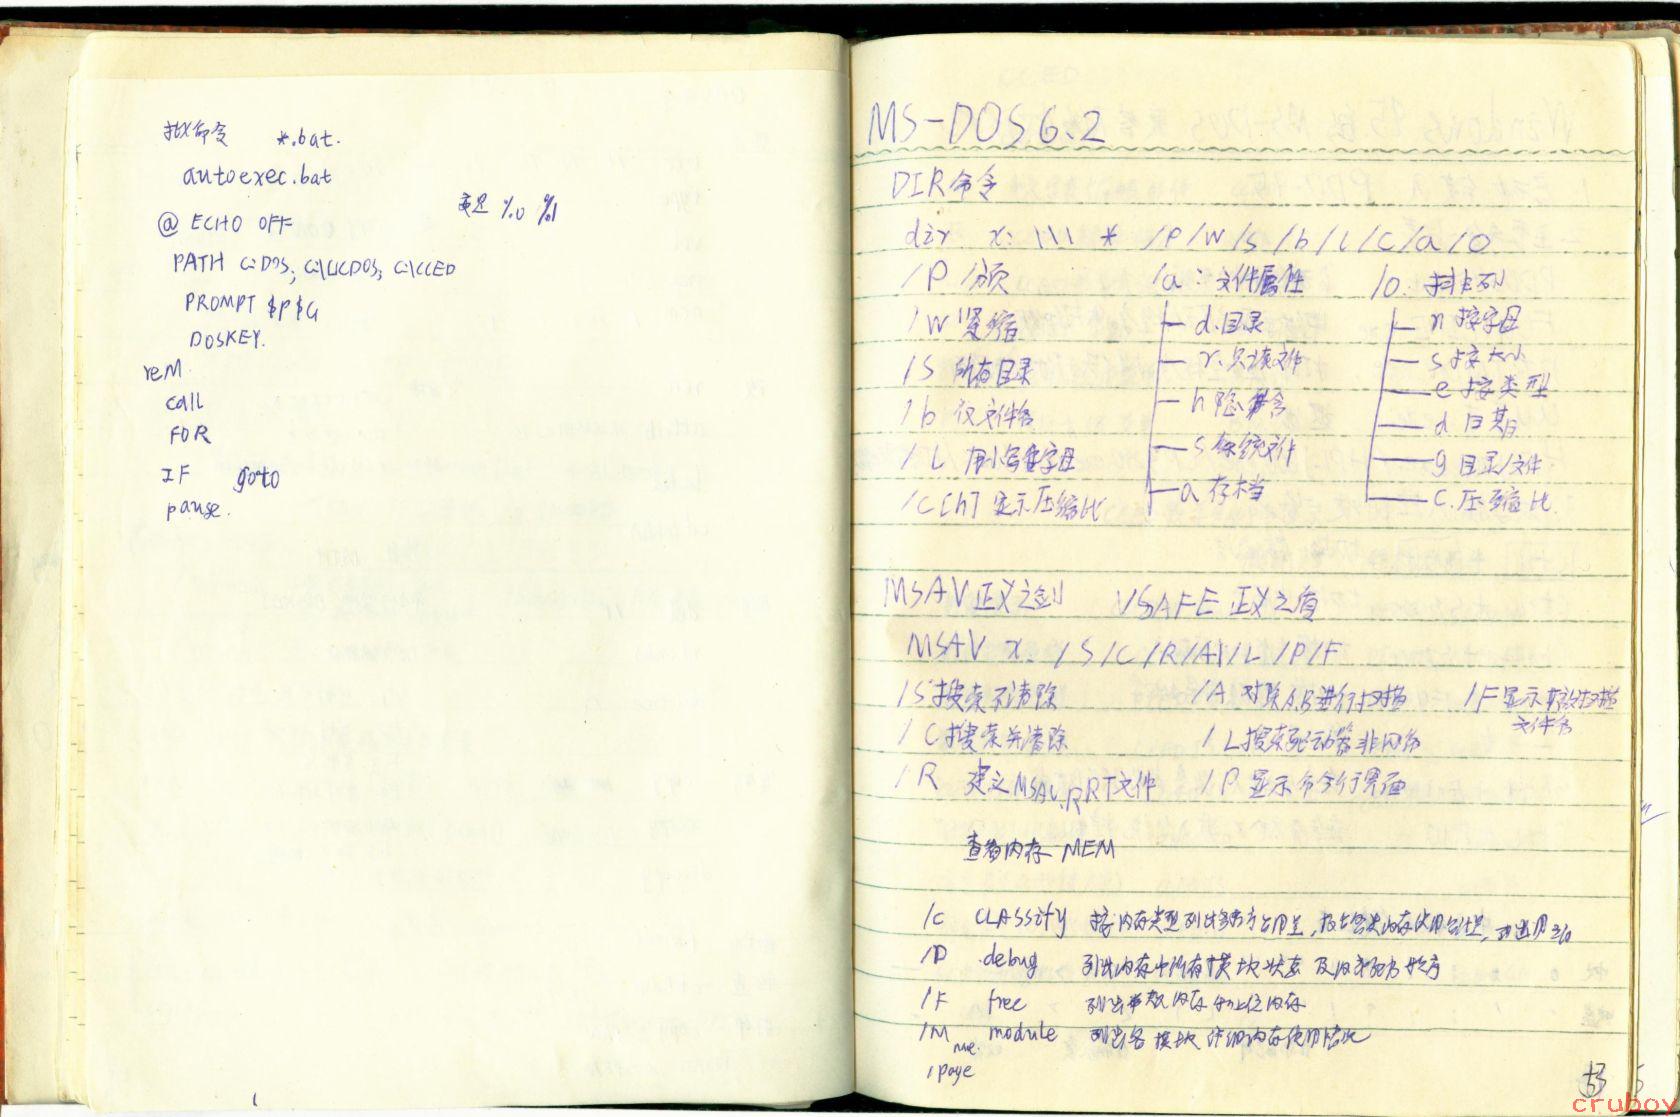 批命令 *.bat.
autoexec.bat
变量 %0 %1
@ ECHO OFF
PATH C:\DOS; C:\UCDOS; C:\CCED
PROMPT $P$G
DOSKEY.
reM
call
FOR
IF goto
pause.
MS-DOS 6.2
DIR命令
dir x: \\\ * /P/W/S/b/L/C/a/O
/P 分页 /a: 文件属性 /O: 排列
/W 紧缩 d.目录 n 按字母
/S 所有目录 r.只读文件 s 按大小
/b 仅文件名 h 隐含 e 按类型
/L 用小写字母 s 系统文件 d 日期
/C[h] 显示压缩比 a 存档 g 目录/文件
C.压缩比
MSAV 正义之剑 VSAFE 正义之盾
MSAV x: /S/C/R/A/L/P/F
/S 搜索不清除 /A 对除A.B进行扫描 /F 显示扫描
文件名
/C 搜索并清除 /L 搜索驱动器非网络
/R 建立MSAV.RRT文件 /P 显示命令行界面
查看内存 MEM
/C CLASSify 按内存类型列出程序占用量,
/D .debug 列出内存中所有模块状态及内部驱动程序
/F free 列出常规内存和上位内存
/M module 列出各模块详细内存使用情况
me.
/page
53
5
cruboy